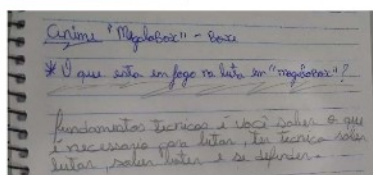 Anime "Megalobox" - Boxe
* O que esta em jogo na luta em "megalobox"?
fundamentos tecnicos é você saber o que
é necessario para lutar, ter tecnica saber
lutar, saber bater e se defender.